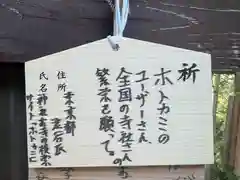 祈
ホトカミの
ユーザーさん
全国の寺社さん
繁栄を願って。
住所
東京都
文京区
氏名
サイト・ホトカミ